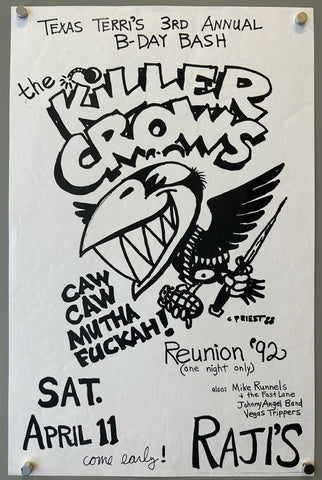 TEXAS TERRI'S 3RD ANNUAL
B-DAY BASH
the KILLER
CROWS
CAW
CAW
MUTHA
FUCKAH!
G PRIEST 88
Reunion '92
(one night only)
also: Mike Runnels
+ the Fast Lane
Johnny Angel Band
Vegas Trippers
SAT.
APRIL 11
come early!
RAJI'S